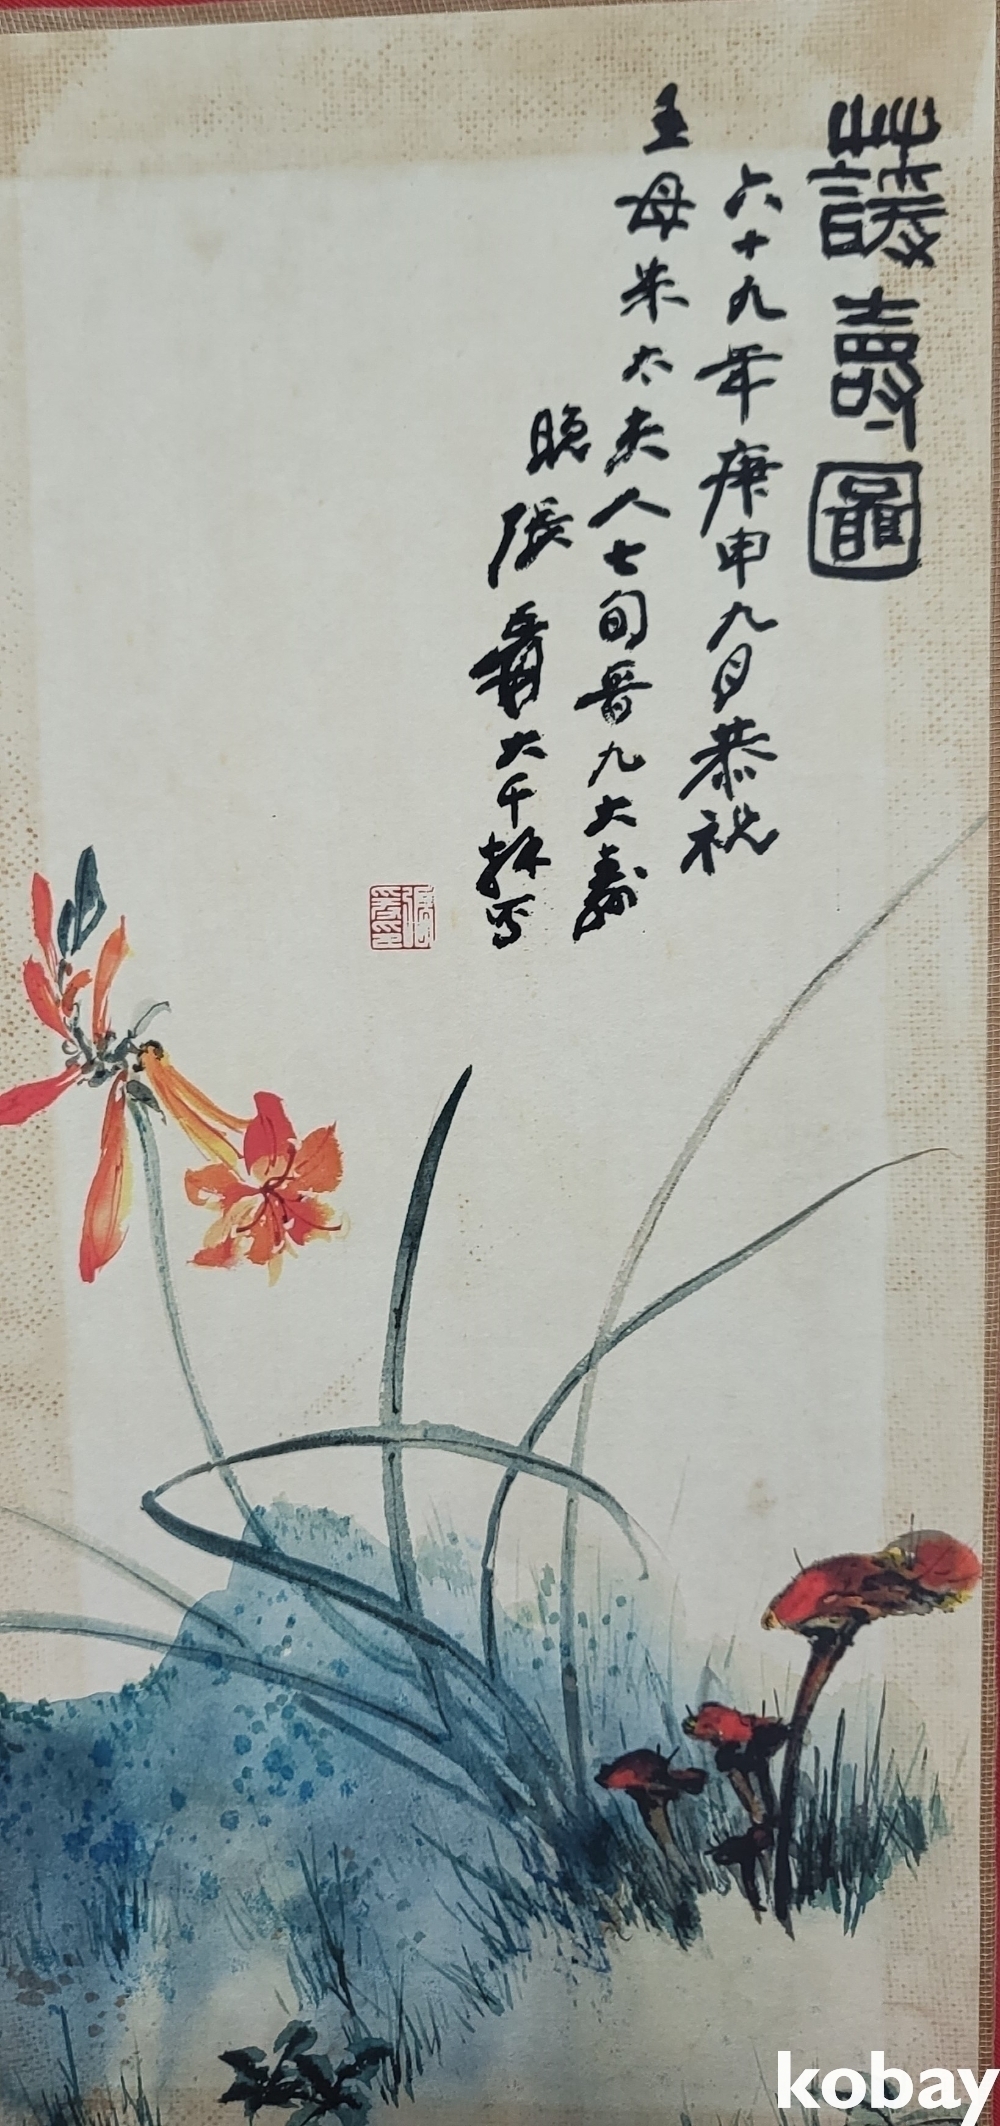 蘐壽圖
六十九年庚申九月恭祝
王母朱太夫人七旬晋九大壽
晚張爰大千拜寫
張爰之印
kobay